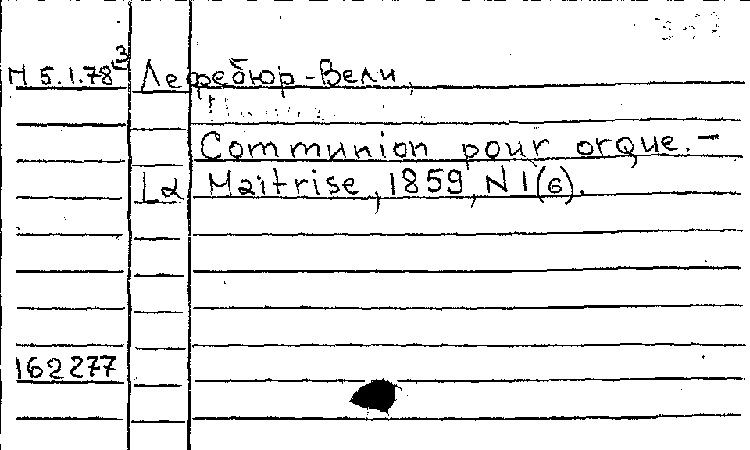 Н 5.1.78³ Лефебюр-Вели,
Communion pour orgue. –
La Maitrise, 1859, N 1(6).
162277